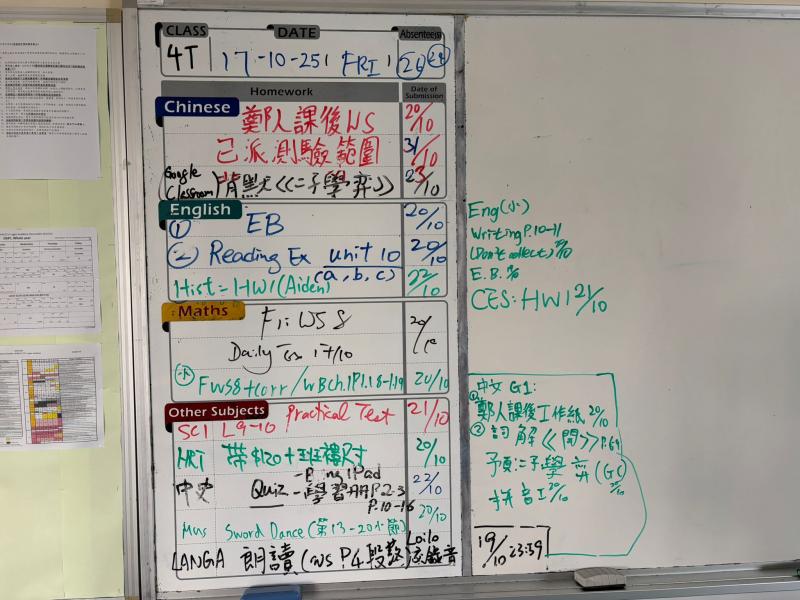 CLASS DATE Absentee(s)
4T 17-10-25 FRI
Homework Date of Submission
Chinese
鄭人課後WS 20/10
已派測驗範圍 31/10
Google Classroom 背默《二子學弈》 23/10
English
① EB 20/10
② Reading Ex unit 10 (a, b, c) 20/10
Hist = HW1 (Aiden) 22/10
Maths
F1: WS 8 20/10
Daily Ex 17/10
FWS8 + corr / WBCh.1P1.18-1.19 20/10
Other Subjects
SCI L9-10 Practical Test 21/10
ART 帶$120+班褸尺寸 20/10
中史 Quiz - Bring iPad 22/10
-學習冊P.2-3
P.10-16
Mus Sword Dance (第13-20小節) 20/10
LANGA 朗讀 (WS P.4 段 Loilo 錄音
Eng(小)
Writing P.10-11
(Don't collect) 20/10
E.B. 20/10
CES: HW1 21/10
中文 G1:
① 鄭人課後工作紙 20/10
② 詞解《閒》P.69
預二子學弈 (GC
拼音工 20/10
19/10 23:59